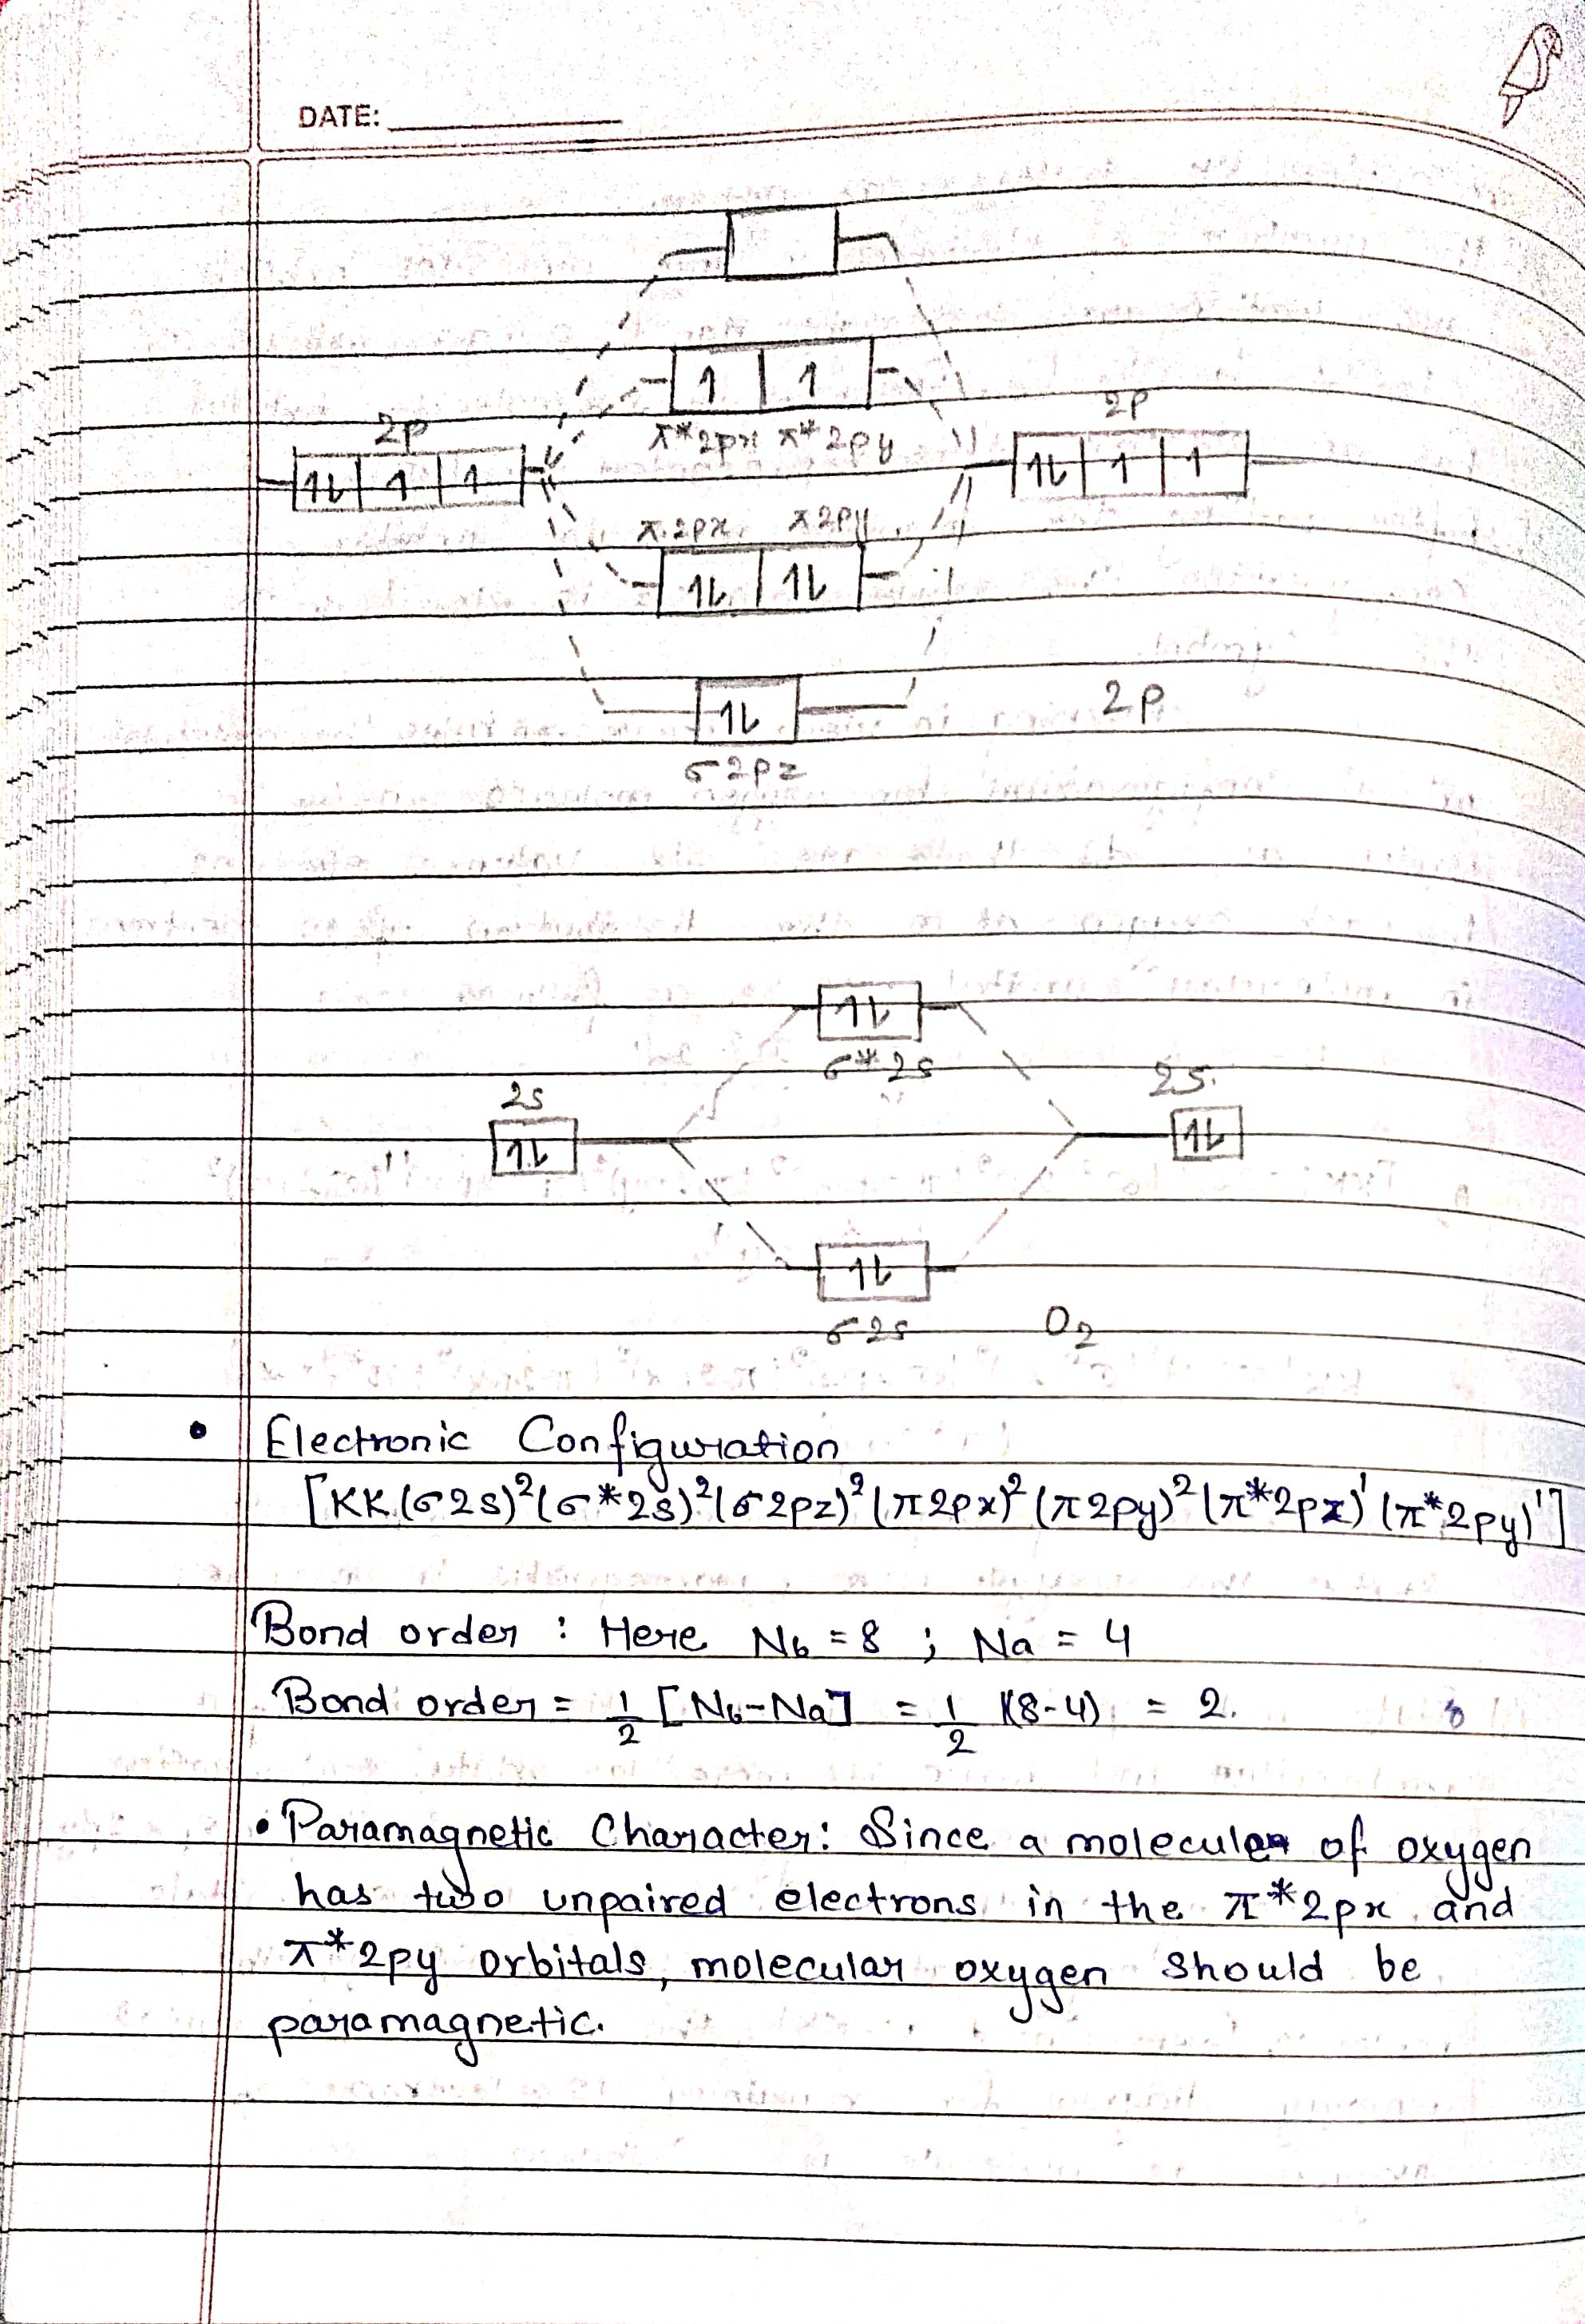 DATE:
1 1
2p 2p
π*2px π*2py
1⇂ 1 1 1⇂ 1 1
π2px π2py
1⇂ 1⇂
1⇂ 2p
σ2pz
1⇂
σ*2s
2s 2s
1⇂ 1⇂
1⇂
σ2s O2
• Electronic Configuration
[KK(σ2s)²(σ*2s)²(σ2pz)²(π2px)²(π2py)²(π*2pz)¹(π*2py)¹]
Bond order : Here Nb = 8 ; Na = 4
Bond order = 1/2 [Nb-Na] = 1/2 (8-4) = 2.
• Paramagnetic Character: Since a molecule of oxygen
has two unpaired electrons in the π*2px and
π*2py orbitals, molecular oxygen should be
paramagnetic.